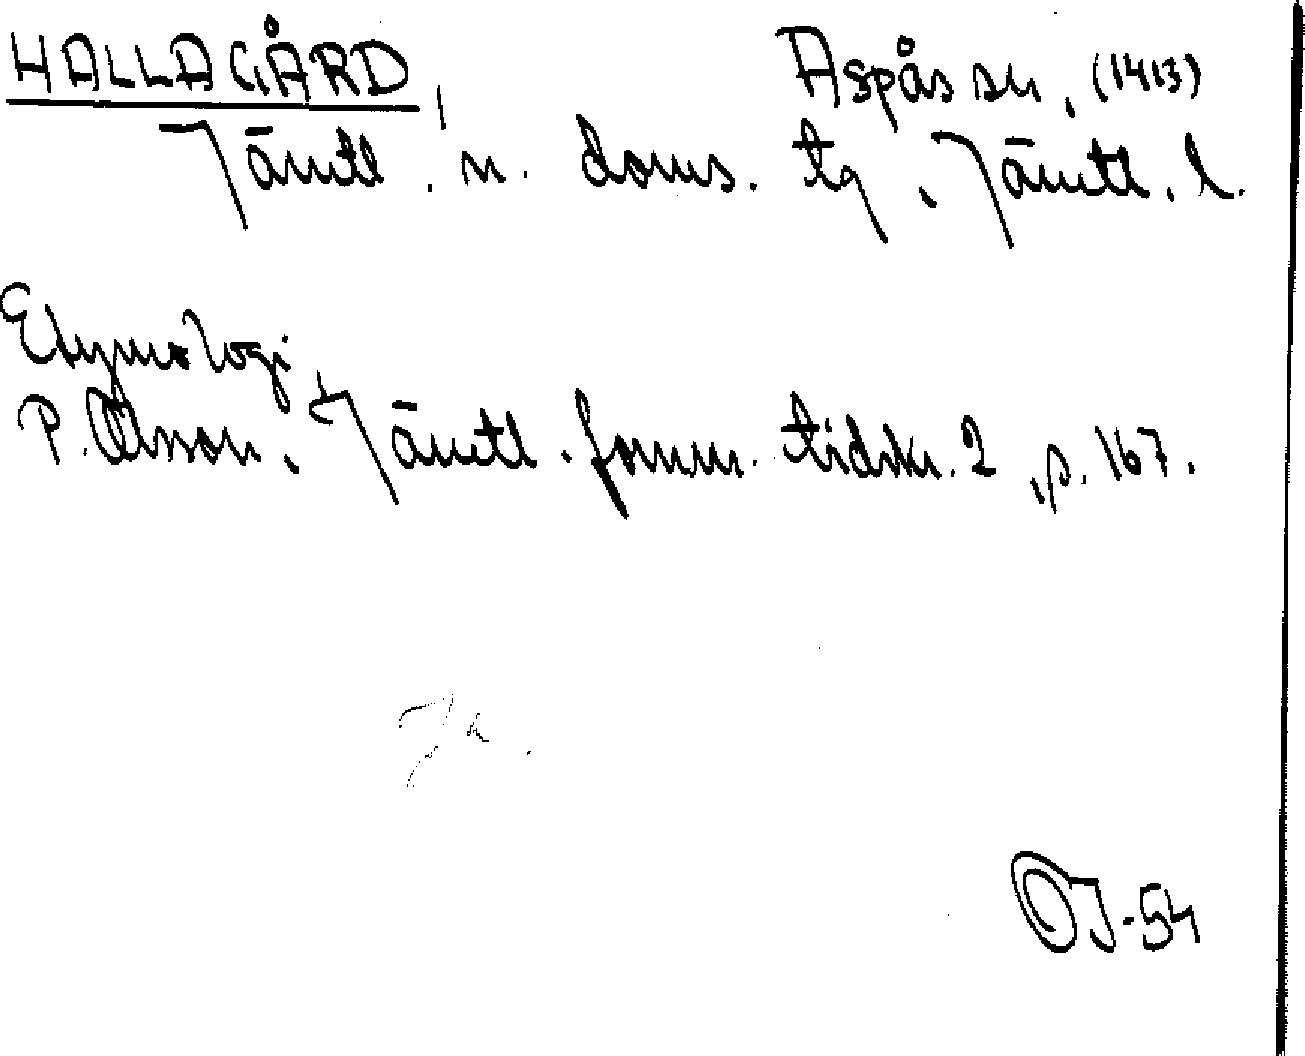 HALLAGÅRD, Aspås sn, (1413)
Jämtl. n. doms. tg, Jämtl. l.
Etymologi
P. Olsson, Jämtl. fornm. tidskr. 2, p. 167.
OJ-54